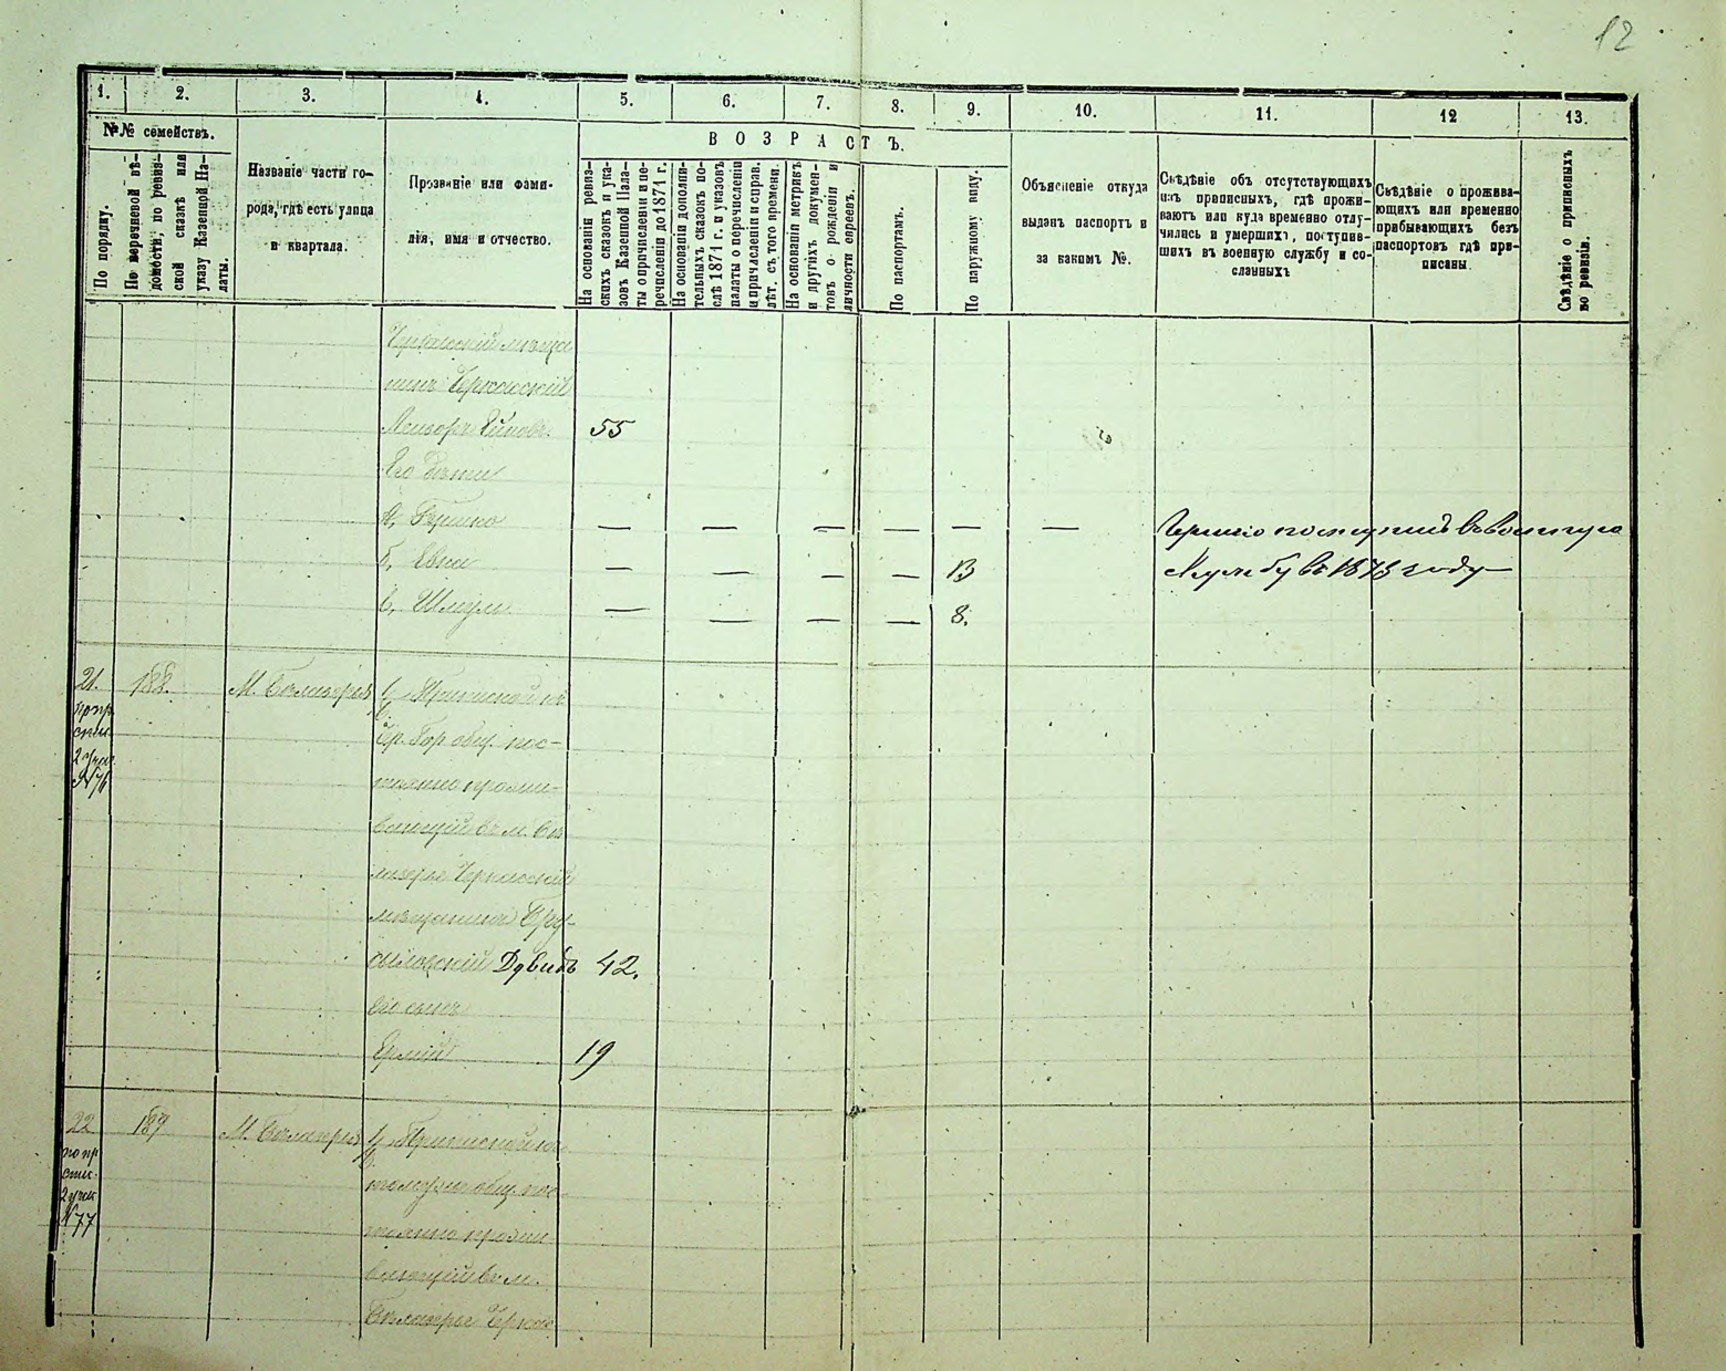 12
1. 2. 3. 4. 5. 6. 7. 8. 9. 10. 11. 12 13.
№№ семействъ.
По порядку.
По перечневой вѣ-
домости, по ревиз-
ской сказкѣ или
указу Казенной Па-
латы.
Названіе части го-
рода, гдѣ есть улица
и квартала.
Прозваніе или фами-
лія, имя и отчество.
ВОЗРАСТЪ.
На основаніи ревиз-
скихъ сказокъ и ука-
зовъ Казенной Пала-
ты о причисленіи и пе-
речисленіи до 1874 г.
На основаніи дополни-
тельныхъ сказокъ по-
слѣ 1874 г. и указовъ
палаты о перечисленіи
и причисленіи и справ.
лѣт. съ того времени.
На основаніи метрикъ
и другихъ докумен-
товъ о рожденіи и
личности евреевъ.
По паспортамъ.
По наружному виду.
Объясненіе откуда
выданъ паспортъ и
за какимъ №.
Свѣдѣніе объ отсутствующихъ
изъ приписныхъ, гдѣ прожи-
ваютъ или куда временно отлу-
чились и умершихъ, поступив-
шихъ въ военную службу и со-
сланныхъ
Свѣдѣніе о прожива-
ющихъ или временно
прибывающихъ безъ
паспортовъ гдѣ при-
писаны
Свѣдѣніе о приписныхъ
по ревизіи.
Черкасскій мѣща
нинъ Черкасскій
Лейзоръ 55
Его дѣти
а, Гершко — — — — — — Гершко поступилъ въ военную
б, Евна — — — — 13 службу въ 1875 году —
в, Шмуль — — — — 8.
21. 188. М. Бѣлозерья Приписной къ
по пр
спис
2 учас
№ 76
Чер. Гор общ. пос-
тоянно прожи-
вающій въ м. Бѣ
лозерье Черкасскій
мѣщанинъ Бру-
силовскій Дувидъ 42.
Его сынъ
19
22 189 М. Бѣлозерья Приписной къ
по пр
спис
2 учас
№ 77
тому же общ. пос-
тоянно прожи
вающій въ м.
Бѣлозерье Черкас